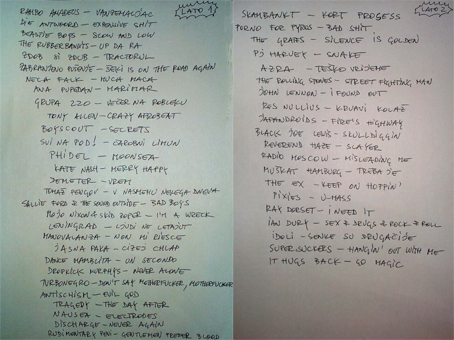 LATO 1
RAMBO AMADEUS – VANZEMALJAC
DIE ANTWOORD – EXPENSIVE SHIT
BEASTIE BOYS – SLOW AND LOW
THE RUBBERBANDITS – UP DA RA
ZDOB SI ZDUB – TRACTORUL
ZABRANJENO PUŠENJE – ZEKI IS ON THE ROAD AGAIN
NECA FALK – MUCA MACA
ANA PUPEDAN – MARIMAR
GRUPA 220 – VEČER NA ROBLEKU
TONY ALLEN – CRAZY AFROBEAT
BOYSCOUT – SECRETS
SVI NA POD! – ZAROBNI LIMUN
PHIDEL – MOONSEA
KATE NASH – MERRY HAPPY
DEMETER – VRETI
TOMAŽ PENGOV – V NASMEHU NEKEGA DNEVA
SALLIE FORD & THE SOUND OUTSIDE – BAD BOYS
MOJO NIXON & SKID ROPER – I'M A WRECK
LENINGRAD – LJUDI NE LETAJUT
MANOVALANZA – NON MI RIESCE
JASNA PAKA – CIZEJ CHLAP
DANKE MAMBLITA – UN SECONDO
DROPKICK MURPHYS – NEVER ALONE
TURBONEGRO – DON'T SAY MOTHERFUCKER, MOTHERFUCKER
ANTISCHISM – EVIL GOD
TRAGEDY – THE DAY AFTER
NAUSEA – ELECTRODES
DISCHARGE – NEVER AGAIN
RUDIMENTARY PENI – GENTLEMEN PREFER BLOOD
LATO 2
SKAMBANKT – KORT PROSESS
PORNO FOR PYROS – BAD SHIT
THE GRAFS – SILENCE IS GOLDEN
PJ HARVEY – SNAKE
AZRA – TEŠKO VRIJEME
THE ROLLING STONES – STREET FIGHTING MAN
JOHN LENNON – I FOUND OUT
RES NULLIUS – KRVAVI KOLAŽ
JAPANDROIDS – FIRE'S HIGHWAY
BLACK JOE LEWIS – SKULLDIGGIN
REVEREND MAZE – SLAYER
RADIO MOSCOW – MISLEADING ME
MUŠKAT HAMBURG – TREBA JE
THE EX – KEEP ON HOPPIN'
PIXIES – U-MASS
RAY DORSET – I NEED IT
IAN DURY – SEX & DRUGS & ROCK & ROLL
IDOLI – SENKE SU DRUGAČIJE
SUPERSUCKERS – HANGIN' OUT WITH ME
IT HUGS BACK – GO MAGIC